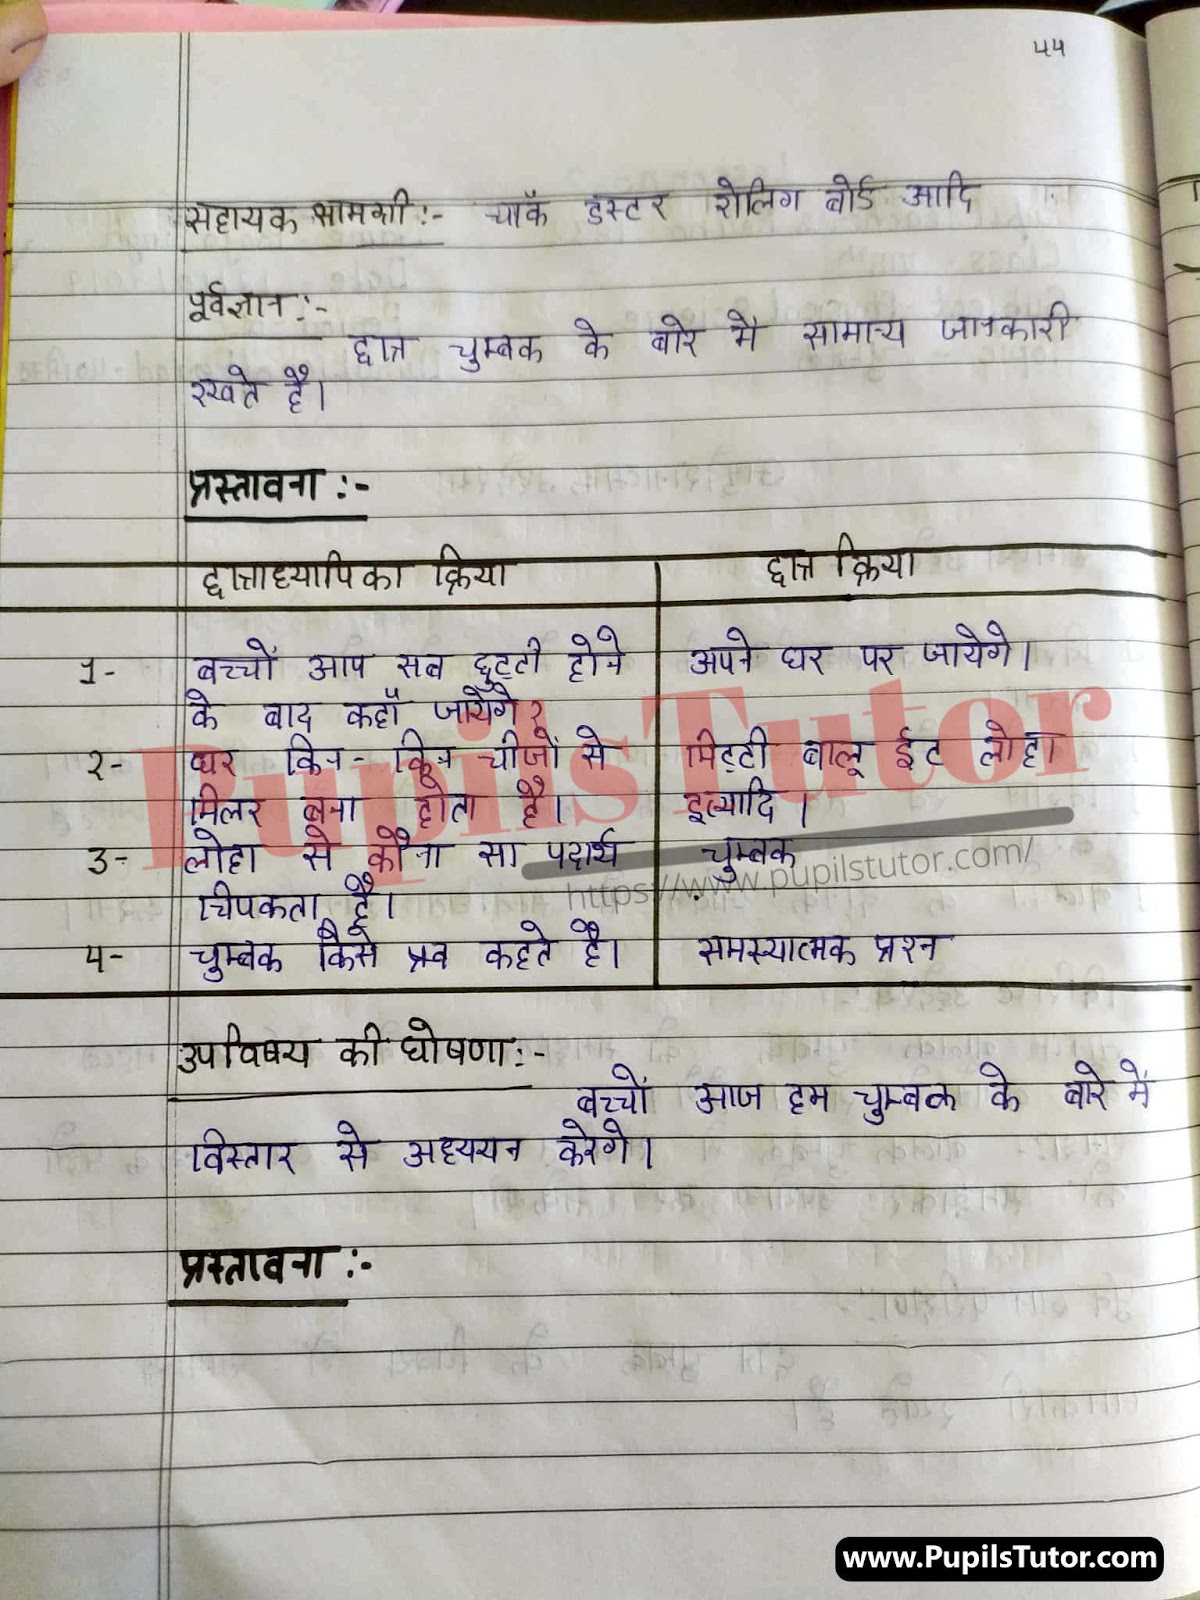 44
सहायक सामग्री :- चॉक डस्टर रोलिग बोर्ड आदि
पूर्वज्ञान :-
छात्र चुम्बक के बारे मे सामान्य जानकारी
रखते है।
प्रस्तावना :-
छात्राध्यापिका क्रिया छात्र क्रिया
1- बच्चों आप सब छुट्टी होने अपने घर पर जायेगे।
के बाद कहाँ जायेंगे?
2- घर किन-किन चीजों से मिट्टी बालू ईट लोहा
मिलर बना होता है। इत्यादि।
3- लोहा से कौना सा पदार्थ चुम्बक
चिपकता है।
4- चुम्बक किसे कहते है। समस्यात्मक प्रश्न
उपविषय की घोषणा :-
बच्चों आज हम चुम्बक के बारे में
विस्तार से अध्ययन करेगे।
प्रस्तावना :-
PupilsTutor
https://www.pupilstutor.com/
www.PupilsTutor.com